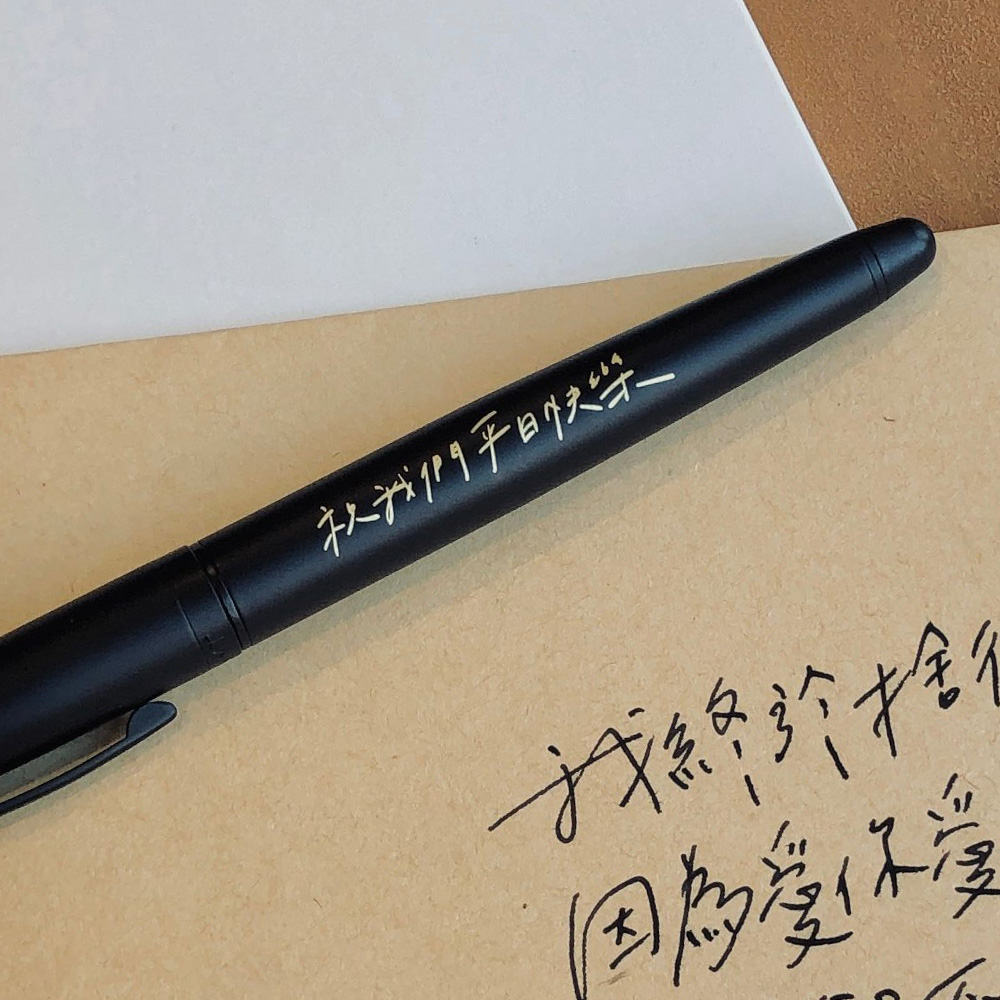 祝我們平日快樂
我終於捨得
因為愛你愛